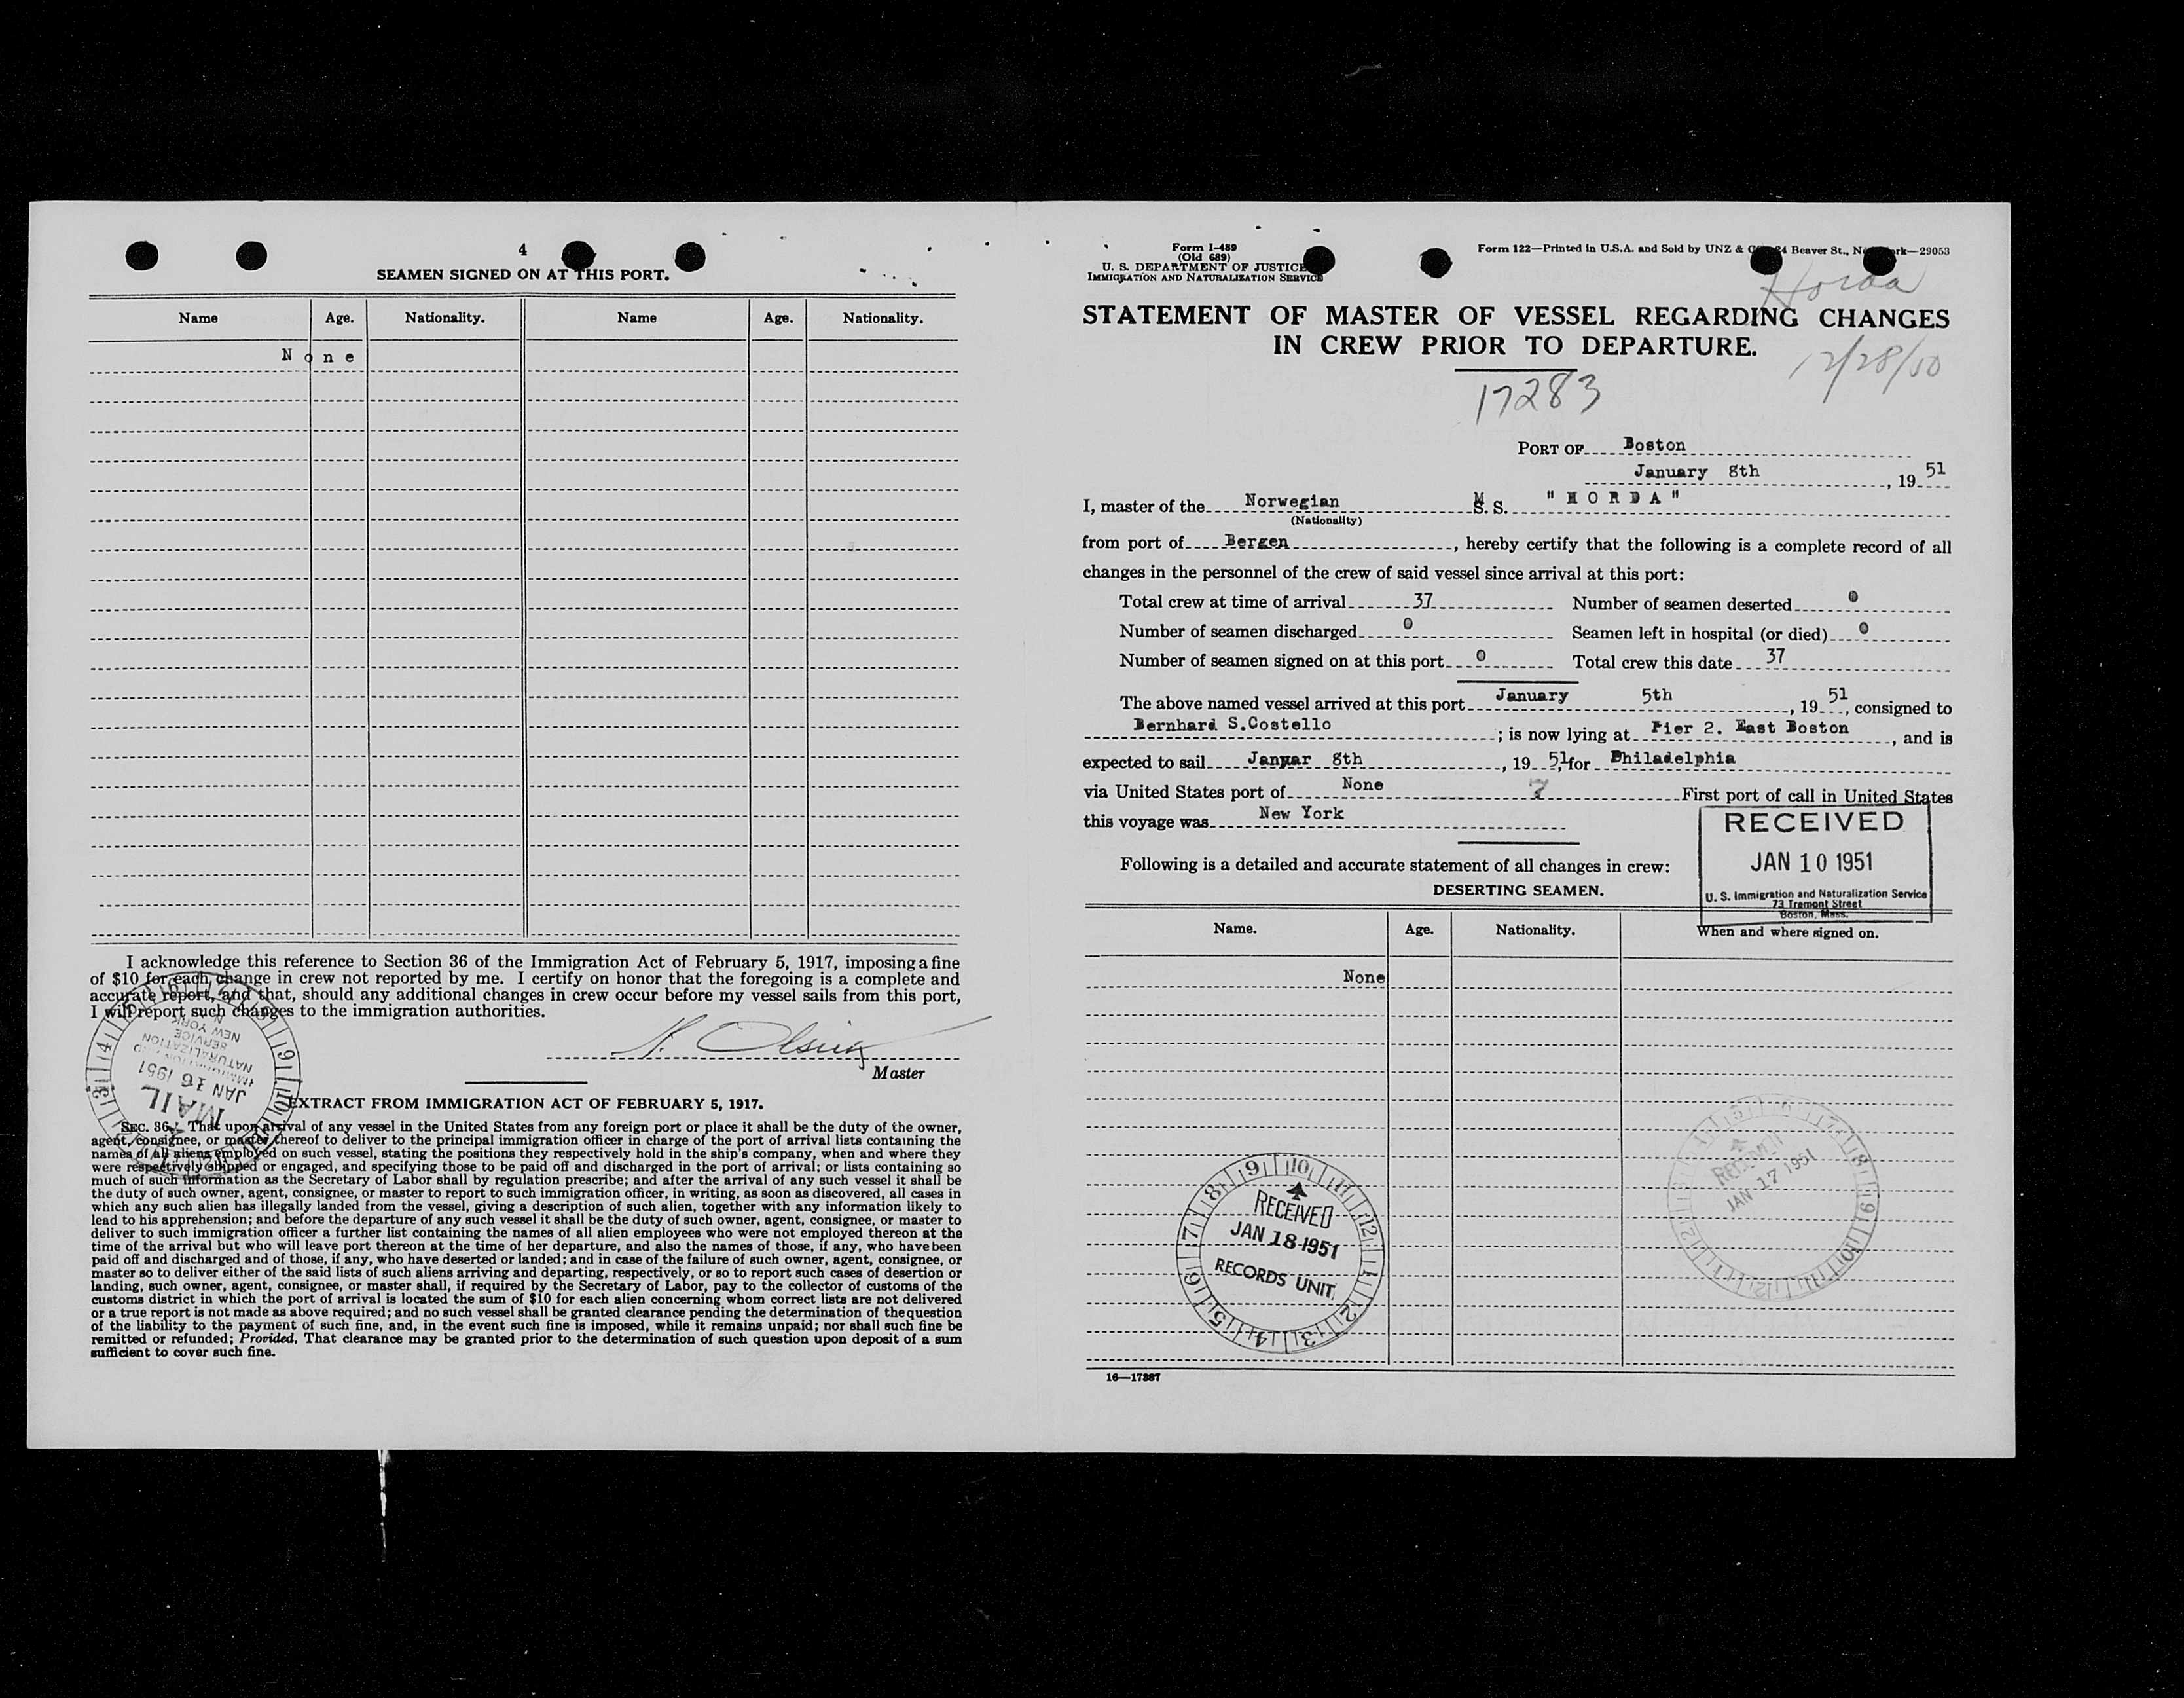 4
SEAMEN SIGNED ON AT THIS PORT.
Name Age. Nationality. Name Age. Nationality.
None
I acknowledge this reference to Section 36 of the Immigration Act of February 5, 1917, imposing a fine
of $10 for each change in crew not reported by me. I certify on honor that the foregoing is a complete and
accurate report, and that, should any additional changes in crew occur before my vessel sails from this port,
I will report such changes to the immigration authorities.
Master
MAIL
JAN 16 1951
NATURALIZATION
SERVICE
NEW YORK
EXTRACT FROM IMMIGRATION ACT OF FEBRUARY 5, 1917.
SEC. 36. That upon arrival of any vessel in the United States from any foreign port or place it shall be the duty of the owner,
agent, consignee, or master thereof to deliver to the principal immigration officer in charge of the port of arrival lists containing the
names of all aliens employed on such vessel, stating the positions they respectively hold in the ship's company, when and where they
were respectively shipped or engaged, and specifying those to be paid off and discharged in the port of arrival; or lists containing so
much of such information as the Secretary of Labor shall by regulation prescribe; and after the arrival of any such vessel it shall be
the duty of such owner, agent, consignee, or master to report to such immigration officer, in writing, as soon as discovered, all cases in
which any such alien has illegally landed from the vessel, giving a description of such alien, together with any information likely to
lead to his apprehension; and before the departure of any such vessel it shall be the duty of such owner, agent, consignee, or master to
deliver to such immigration officer a further list containing the names of all alien employees who were not employed thereon at the
time of the arrival but who will leave port thereon at the time of her departure, and also the names of those, if any, who have been
paid off and discharged and of those, if any, who have deserted or landed; and in case of the failure of such owner, agent, consignee, or
master so to deliver either of the said lists of such aliens arriving and departing, respectively, or so to report such cases of desertion or
landing, such owner, agent, consignee, or master shall, if required by the Secretary of Labor, pay to the collector of customs of the
customs district in which the port of arrival is located the sum of $10 for each alien concerning whom correct lists are not delivered
or a true report is not made as above required; and no such vessel shall be granted clearance pending the determination of the question
of the liability to the payment of such fine, and, in the event such fine is imposed, while it remains unpaid; nor shall such fine be
remitted or refunded; Provided, That clearance may be granted prior to the determination of such question upon deposit of a sum
sufficient to cover such fine.
Form I-489
(Old 689)
U. S. DEPARTMENT OF JUSTICE
IMMIGRATION AND NATURALIZATION SERVICE
Form 122—Printed in U.S.A. and Sold by UNZ & Beaver St., 29053
Horda
STATEMENT OF MASTER OF VESSEL REGARDING CHANGES
IN CREW PRIOR TO DEPARTURE.
12/28/50
17283
PORT OF Boston
January 8th, 1951
I, master of the Norwegian M S. S. "HORDA"
(Nationality)
from port of Bergen, hereby certify that the following is a complete record of all
changes in the personnel of the crew of said vessel since arrival at this port:
Total crew at time of arrival 37 Number of seamen deserted 0
Number of seamen discharged 0 Seamen left in hospital (or died) 0
Number of seamen signed on at this port 0 Total crew this date 37
The above named vessel arrived at this port January 5th, 1951, consigned to
Bernhard S.Costello; is now lying at Pier 2. East Boston, and is
expected to sail Janyar 8th, 1951, for Philadelphia
via United States port of None ? First port of call in United States
this voyage was New York
RECEIVED
JAN 10 1951
U. S. Immigration and Naturalization Service
73 Tremont Street
Boston, Mass.
Following is a detailed and accurate statement of all changes in crew:
DESERTING SEAMEN.
Name. Age. Nationality. When and where signed on.
None
RECEIVED
JAN 17 1951
RECEIVED
JAN 18 1951
RECORDS UNIT.
16—17387